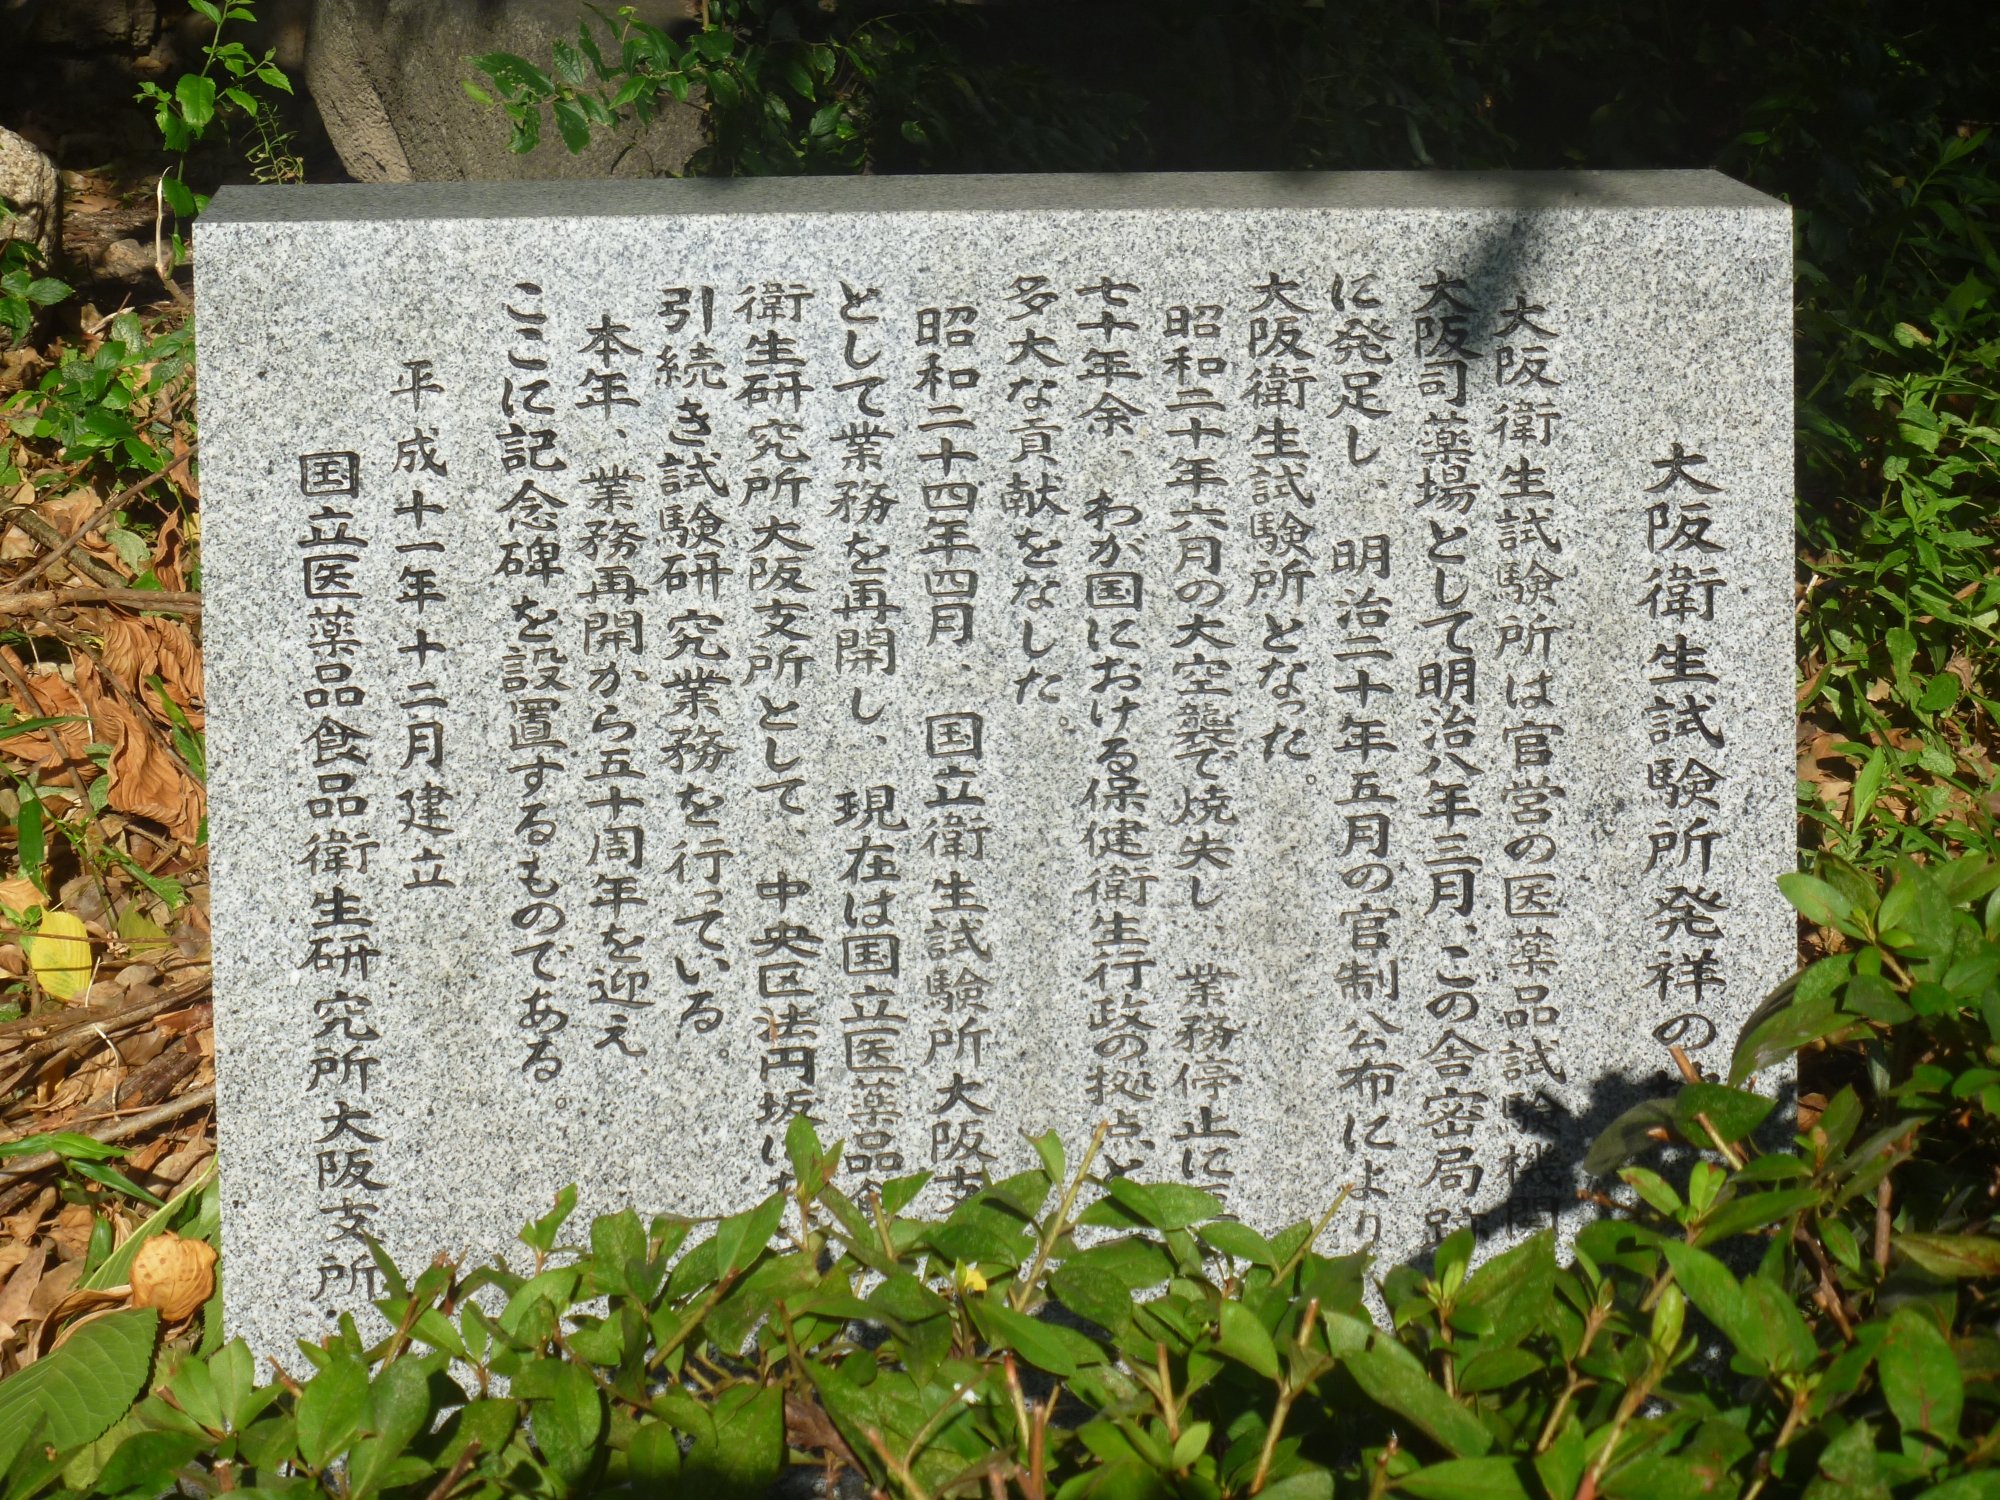 大阪衛生試験所発祥の
大阪衛生試験所は官営の医薬品試験機関
大阪司薬場として明治八年三月、この舎密局跡
に発足し、明治二十年五月の官制公布により
大阪衛生試験所となった。
昭和二十年六月の大空襲で焼失し、業務停止に
七十年余、わが国における保健衛生行政の拠点と
多大な貢献をなした。
昭和二十四年四月、国立衛生試験所大阪支
として業務を再開し、現在は国立医薬品食
衛生研究所大阪支所として、中央区法円坂に
引続き試験研究業務を行っている。
本年、業務再開から五十周年を迎え
ここに記念碑を設置するものである。
平成十一年十二月建立
国立医薬品食品衛生研究所大阪支所